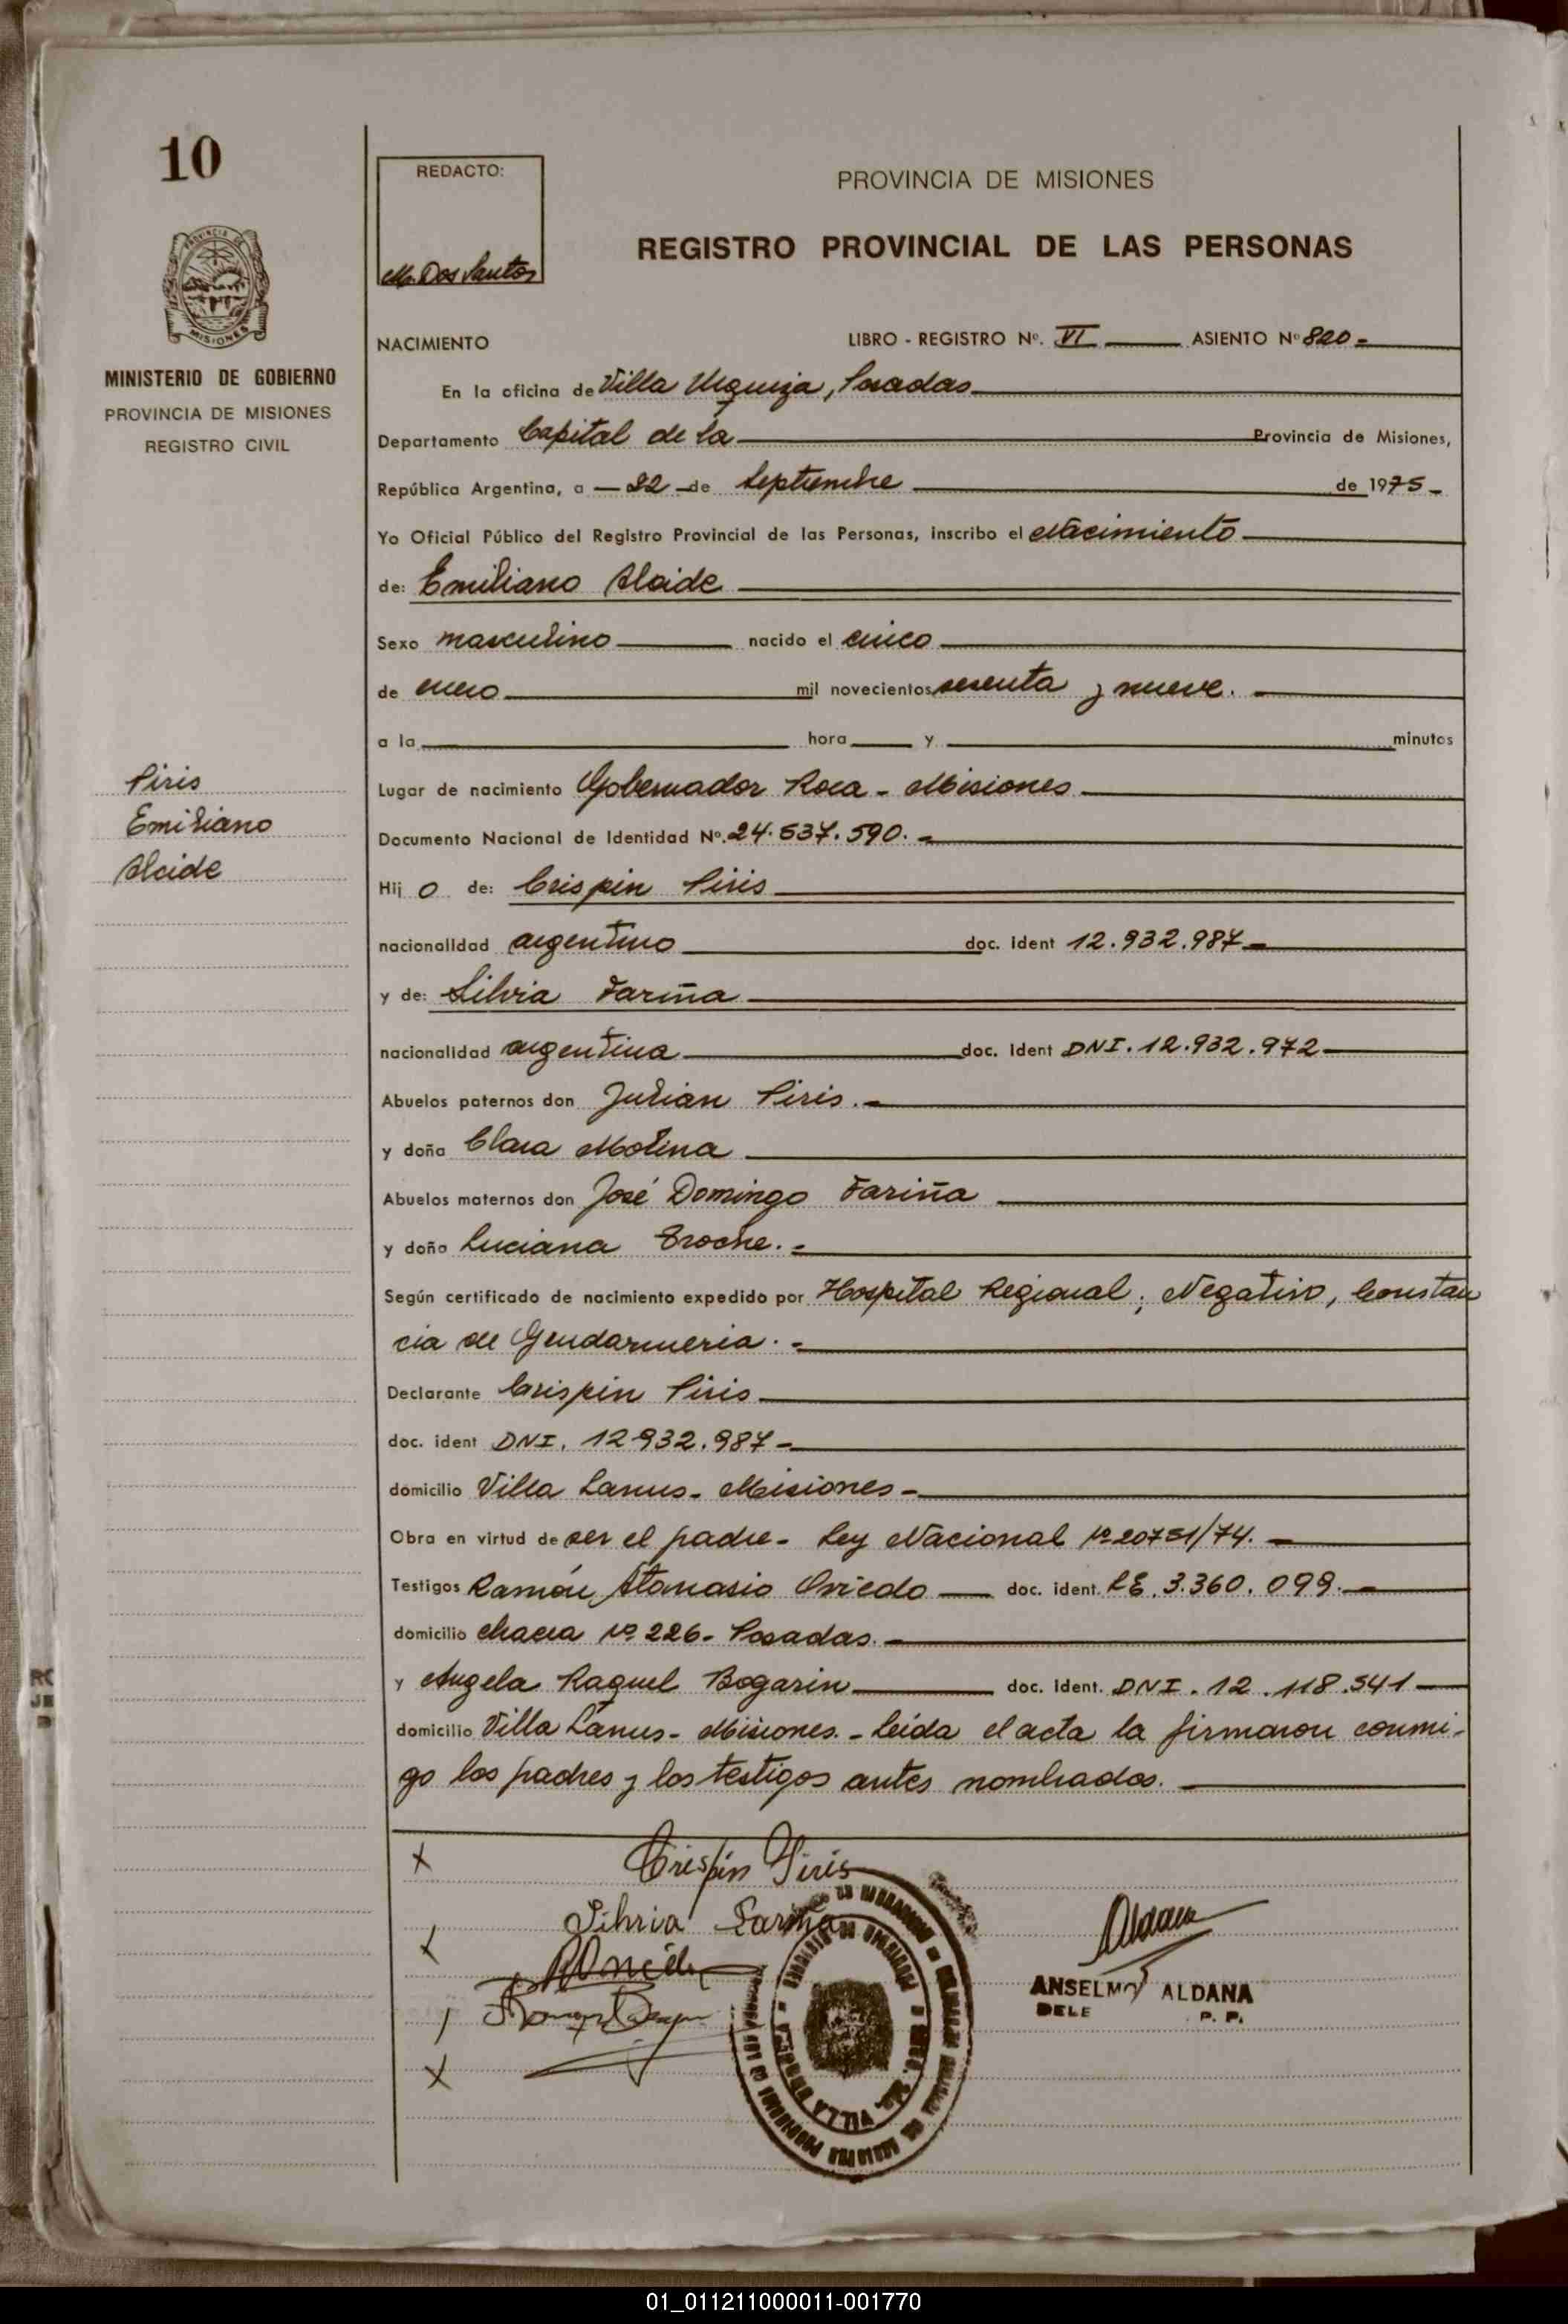 10
REDACTO:
M. Dos Santos
PROVINCIA DE MISIONES
REGISTRO PROVINCIAL DE LAS PERSONAS
PROVINCIA DE
MISIONES
MINISTERIO DE GOBIERNO
PROVINCIA DE MISIONES
REGISTRO CIVIL
NACIMIENTO LIBRO - REGISTRO Nº. VI ASIENTO Nº 820 -
En la oficina de Villa Urquiza, Posadas
Departamento Capital de la Provincia de Misiones,
República Argentina, a - 22 - de Septiembre de 1975 -
Yo Oficial Público del Registro Provincial de las Personas, inscribo el Nacimiento
de: Emiliano Alcide
Sexo masculino nacido el cinco
de enero mil novecientos sesenta y nueve.
a la hora y minutos
Piris
Emiliano
Alcide
Lugar de nacimiento Gobernador Roca - Misiones
Documento Nacional de Identidad Nº. 24.537.590. -
Hij o de: Crispin Piris
nacionalidad argentino doc. ident 12.932.987 -
y de: Silvia Fariña
nacionalidad argentina doc. Ident DNI. 12.932.972
Abuelos paternos don Julian Piris. -
y doña Clara Molina
Abuelos maternos don José Domingo Fariña
y doña Luciana Troche. -
Según certificado de nacimiento expedido por Hospital Regional; Negativo, Constan
cia de Gendarmeria. -
Declarante Crispin Piris
doc. ident DNI. 12932.987 -
domicilio Villa Lanus - Misiones -
Obra en virtud de ser el padre - Ley Nacional Nº 20751/74. -
Testigos Ramón Atanasio Oviedo doc. ident. LE. 3.360.099. -
domicilio chacra Nº 226 - Posadas. -
y Angela Raquel Bogarin doc. Ident. DNI. 12.118.541
domicilio Villa Lanus - Misiones. - Leida el acta la firmaron conmi-
go los padres y los testigos antes nombrados.
Crispin Piris
Silvia Fariña
Aldana
ANSELMO ALDANA
DELE P. P.
VILLA URQUIZA
01_011211000011-001770